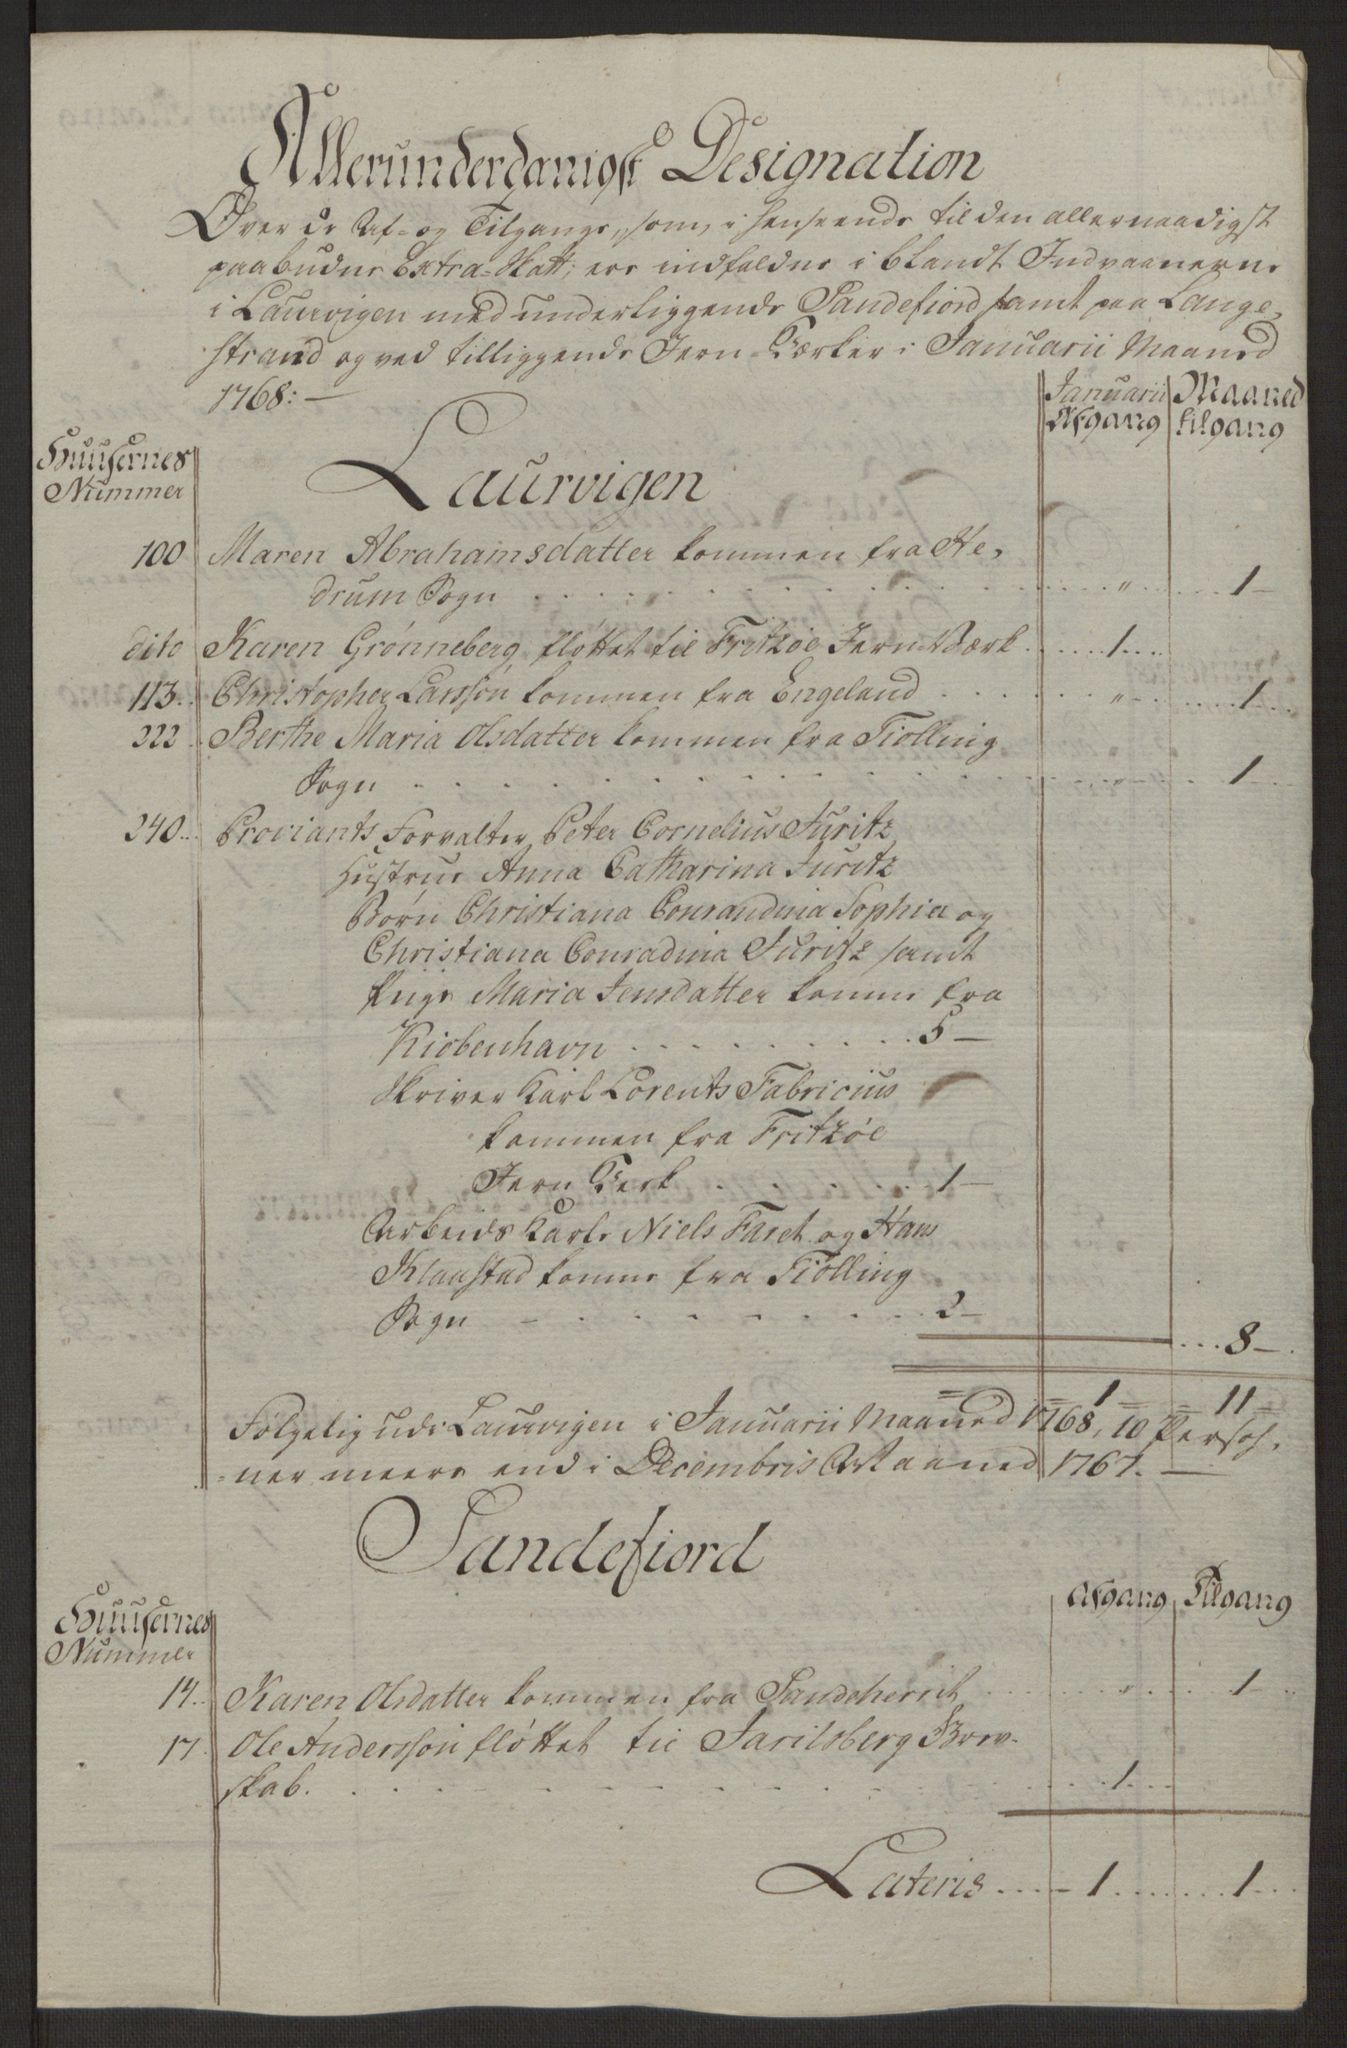 Allerunderdanigst Designation
Over de Af- og Tilgange, som, i henseende til den allernaadigst
paabudne Extra-Skatt, ere indfaldne i blandt Indvaanerne
i Laurvigen med underliggende Sandefiord samt paa Lange,
strand og ved tilliggende Jern-Værker i Januarii Maaned
1768: —
Januarii Maaned
Afgang Tilgang
Huusernes
Nummer
Laurvigen
100 Maren Abrahamsdatter kommen fra He,
drum Sogn . . . " . . . 1 —
dito Karen Grønneberg fløttet til Fritzøe Jern-Værk . . . 1 . . .
113. Christopher Larssøn kommen fra Engeland . . . " . . . 1 . . .
222 Berthe Maria Olsdatter kommen fra Tiølling
Sogn . . . " . . . 1 . . .
240. Proviants Forvalter Peter Cornelius Juritz
Hustrue Anna Catharina Juritz
Børn Christiana Conrandina Sophia og
Christiana Conradina Juritz samt
Pige Maria Jensdatter komne fra
Kiøbenhavn . . . 5 —
Skriver Karl Lorents Fabricius
kommen fra Fritzøe
Jern Verk . . . 1 —
Arbeids Karle Niels Faret og Hans
Klaastad komne fra Tiølling
Sogn . . . 2 —
. . . 8 — .
= = 1 = = 11 =
Følgelig udi Laurvigen i Januarii Maaned 1768, 10 Persoh,
=ner meere end i Decembris Maaned 1767. —
Sandefiord
Afgang Tilgang
Huusernes
Nummer
14. Karen Olsdatter kommen fra Sandeherrit . . . " . . . 1 . . .
17. Ole Anderssøn fløttet til Jarilsberg Grev-
skab. . . . 1 . . .
Lateris . . . 1 . . . 1 . . .